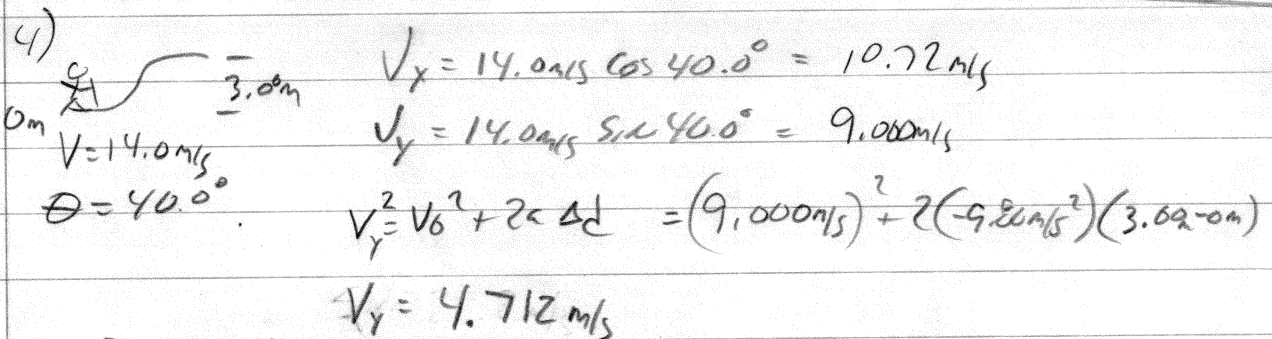 4)
3.0m
0m
V=14.0m/s
θ=40.0°
Vx = 14.0m/s Cos 40.0° = 10.72m/s
Vy = 14.0m/s Sin 40.0° = 9.000m/s
Vy² = V0² + 2a Δd = (9.000m/s)² + 2(-9.80m/s²)(3.0m-0m)
Vy = 4.712 m/s